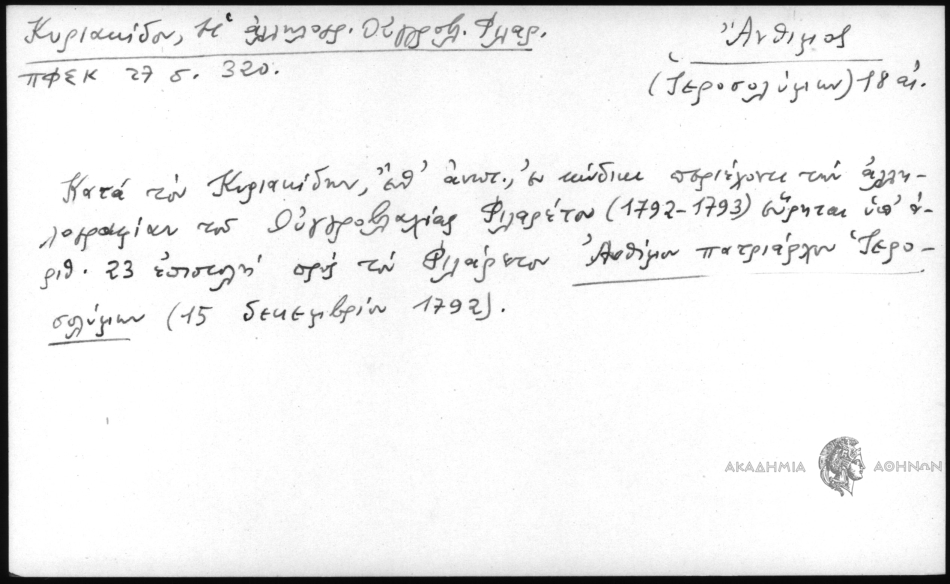 Κυριακίδου, Ἡ ἀλληλογρ. Οὑγγροβλ. Φιλαρ.
ΠΦΕΚ 27 σ. 320.
Ἄνθιμος
(Ἱεροσολύμων) 18 αἰ.
Κατά τόν Κυριακίδην, ἔνθ' ἀνωτ., ἐν κώδικι περιέχοντι τήν ἀλλη-
λογραφίαν τοῦ Οὑγγροβλαχίας Φιλαρέτου (1792-1793) εὕρηται ὑπ' ἀ-
ριθ. 23 ἐπιστολή πρός τόν Φιλάρετον Ἀνθίμου πατριάρχου Ἱερο-
σολύμων (15 δεκεμβρίου 1792).
ΑΚΑΔΗΜΙΑ ΑΘΗΝΩΝ